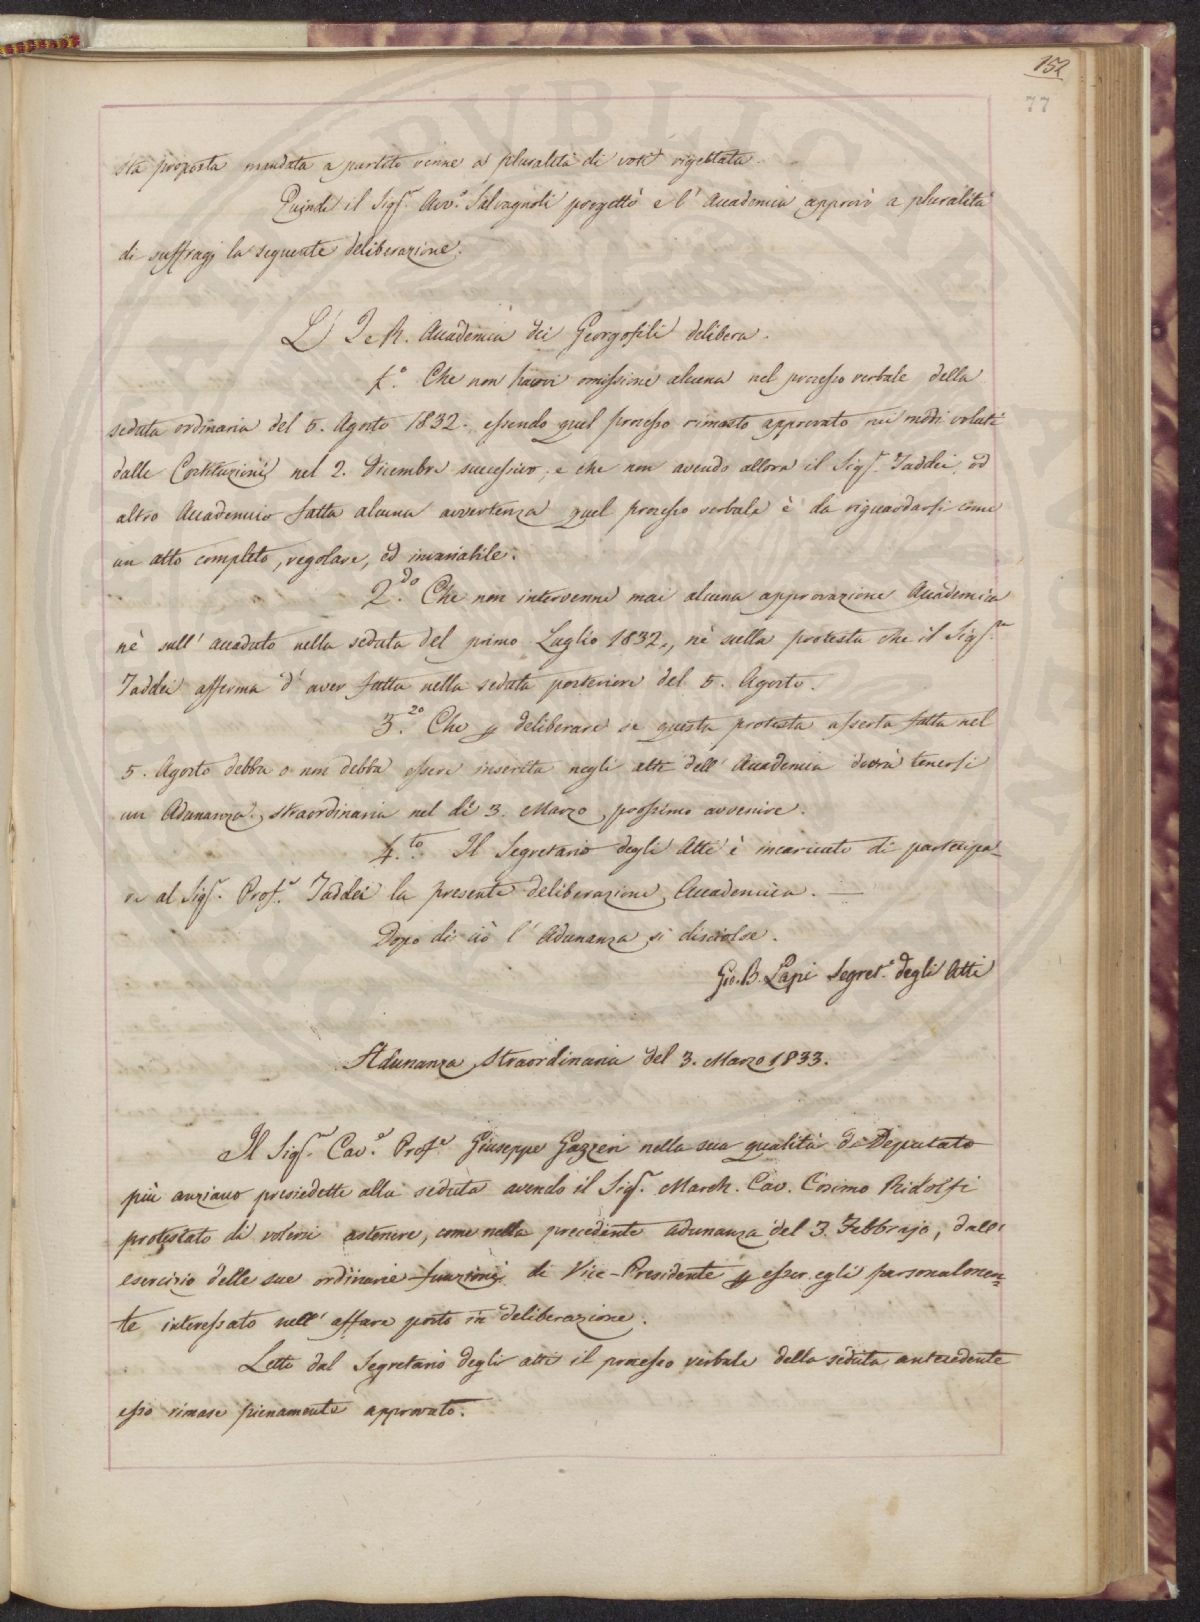 152
77
sta proposta mandata a partito venne a pluralità di voti rigettata.
Quindi il Sigr. Avvo. Salvagnoli progettò e l'Accademia approvò a pluralità
di suffragj la seguente deliberazione.
L' I e R. Accademia dei Georgofili delibera.
1o. Che non havvi omissione alcuna nel processo verbale della
seduta ordinaria del 5. Agosto 1832. essendo quel processo rimasto approvato nei modi voluti
dalle Costituzioni nel 2. Dicembre successivo; e che non avendo allora il Sigr. Taddei, od
altro Accademico fatta alcuna avvertenza quel processo verbale è da riguardarsi come
un atto completo, regolare, ed invariabile.
2do. Che non intervenne mai alcuna approvazione Accademica
nè sull'accaduto nella seduta del primo Luglio 1832., nè sulla protesta che il Sigr.
Taddei afferma d'aver fatta nella seduta posteriore del 5. Agosto.
3zo. Che p deliberare se questa protesta asserta fatta nel
5. Agosto debba o non debba essere inserita negli atti dell'Accademia dovrà tenersi
un Adunanza straordinaria nel dì 3. Marzo prossimo avvenire.
4to. Il Segretario degli Atti è incaricato di partecipa-
re al Sigr. Profr. Taddei la presente deliberazione Accademica. —
Dopo di ciò l'Adunanza si disciolse.
Gio. B. Lapi Segreto. degli Atti
Adunanza Straordinaria del 3. Marzo 1833.
Il Sigr. Cave. Profe. Giuseppe Gazzeri nella sua qualità di Deputato
più anziano presiedette alla seduta avendo il Sigr. March. Cav. Cosimo Ridolfi
protestato di volersi astenere, come nella precedente adunanza del 3. Febbrajo, dall'
esercizio delle sue ordinarie funzioni di Vice-Presidente p esser egli personalmen=
te interessato nell'affare posto in deliberazione.
Letto dal Segretario degli atti il processo verbale della seduta antecedente
esso rimase pienamente approvato.